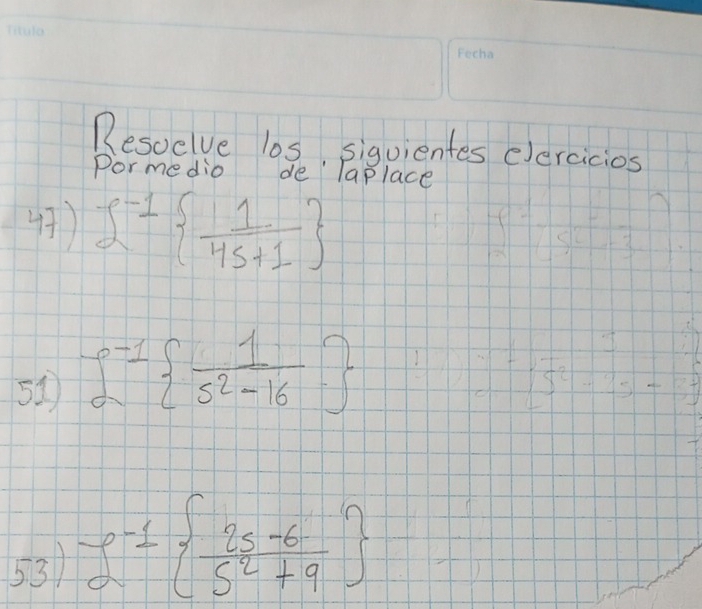 Título
Fecha
Resuelve los siguientes ejercicios
Por medio de laplace
47) ℒ⁻¹ { 1 / 4s+1 }
51) ℒ⁻¹ { 1 / s² - 16 }
53) ℒ⁻¹ { 2s - 6 / s² + 9 }